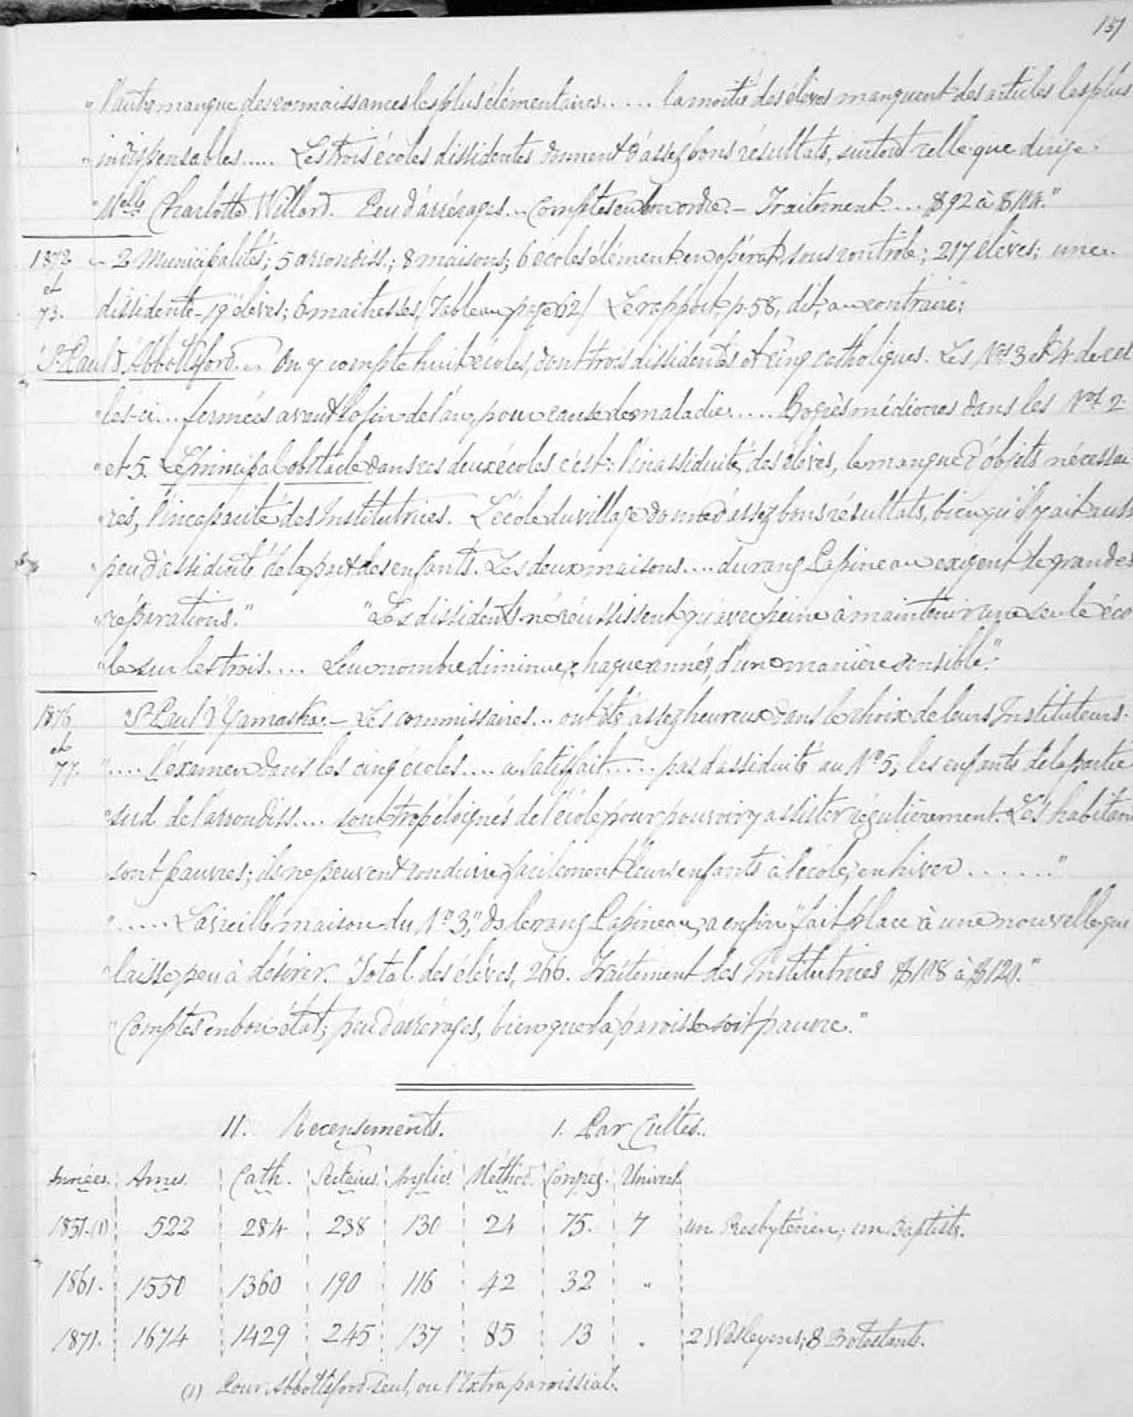 157
" l'autre manque des connaissances les plus élémentaires..... la moitié des élèves manquent des articles les plus
" indispensables..... Les trois écoles dissidentes donnent d'assez bons résultats, surtout celle que dirige
" Melle Charlotte Willard. Peu d'arrérages... Comptes en bon ordre. - Traitement.... $92 à $104."
1872 et 73. - 2 Municipalités; 5 arrondiss.; 8 maisons; 6 écoles élément. en opérat. sous contrôle; 217 élèves; une
dissidente - 19 élèves; 6 maitresses (Tableau page 62) Le rapport, p. 58, dit, au contraire:
"St Paul d'Abbottsford.... On y compte huit écoles, dont trois dissidentes et cinq catholiques. Les Nos 3 et 4 de cel
" les-ci... fermées avant la fin de l'an, pour cause de maladie..... Progrès médiocres dans les Nos 2
" et 5. Le principal obstacle dans ces deux écoles c'est: l'inassiduité des élèves, le manque d'objets nécessai
" res, l'incapacité des Institutrices. L'école du village donne d'assez bons résultats, bien qu'il y ait aussi
" peu d'assiduité de la part des enfants. Les deux maisons.... du rang Papineau exigent de grandes
" réparations." "Les dissidents ne réussissent qu'avec peine à maintenir une seule éco
" le sur les trois.... Leur nombre diminue, chaque année, d'une manière sensible."
1876 et 77. St Paul d'Yamaska. - Les commissaires... ont été assez heureux dans le choix de leurs Instituteurs.
".... L'examen dans les cinq écoles.... a satisfait..... pas d'assiduité au No 5; les enfants de la partie
" sud de l'arrondiss.... sont trop éloignés de l'école pour pouvoir y assister régulièrement. Les habitants
sont pauvres; ils ne peuvent conduire facilement leurs enfants à l'école, en hiver......"
"..... La vieille maison du No 3," ds le rang Papineau, a enfin "fait place à une nouvelle qui
" laisse peu à désirer. Total des élèves, 266. Traitement des Institutrices $108 à $120."
" Comptes en bon état; peu d'arrérages, bien que la paroisse soit pauvre."
II. Recensements. I. Par Cultes.
Années. Ames. Cath. Sectaires. Anglic. Méthod. Congrég. Univers.
1851.(1) 522 284 238 130 24 75. 7 un Presbytérien; un Baptiste.
1861. 1550 1360 190 116 42 32 "
1871. 1674 1429 245 137 85 13 . 2 Wesleyens; 8 Protestants.
(1) Pour Abbottsford seul, ou l'Extraparoissial.